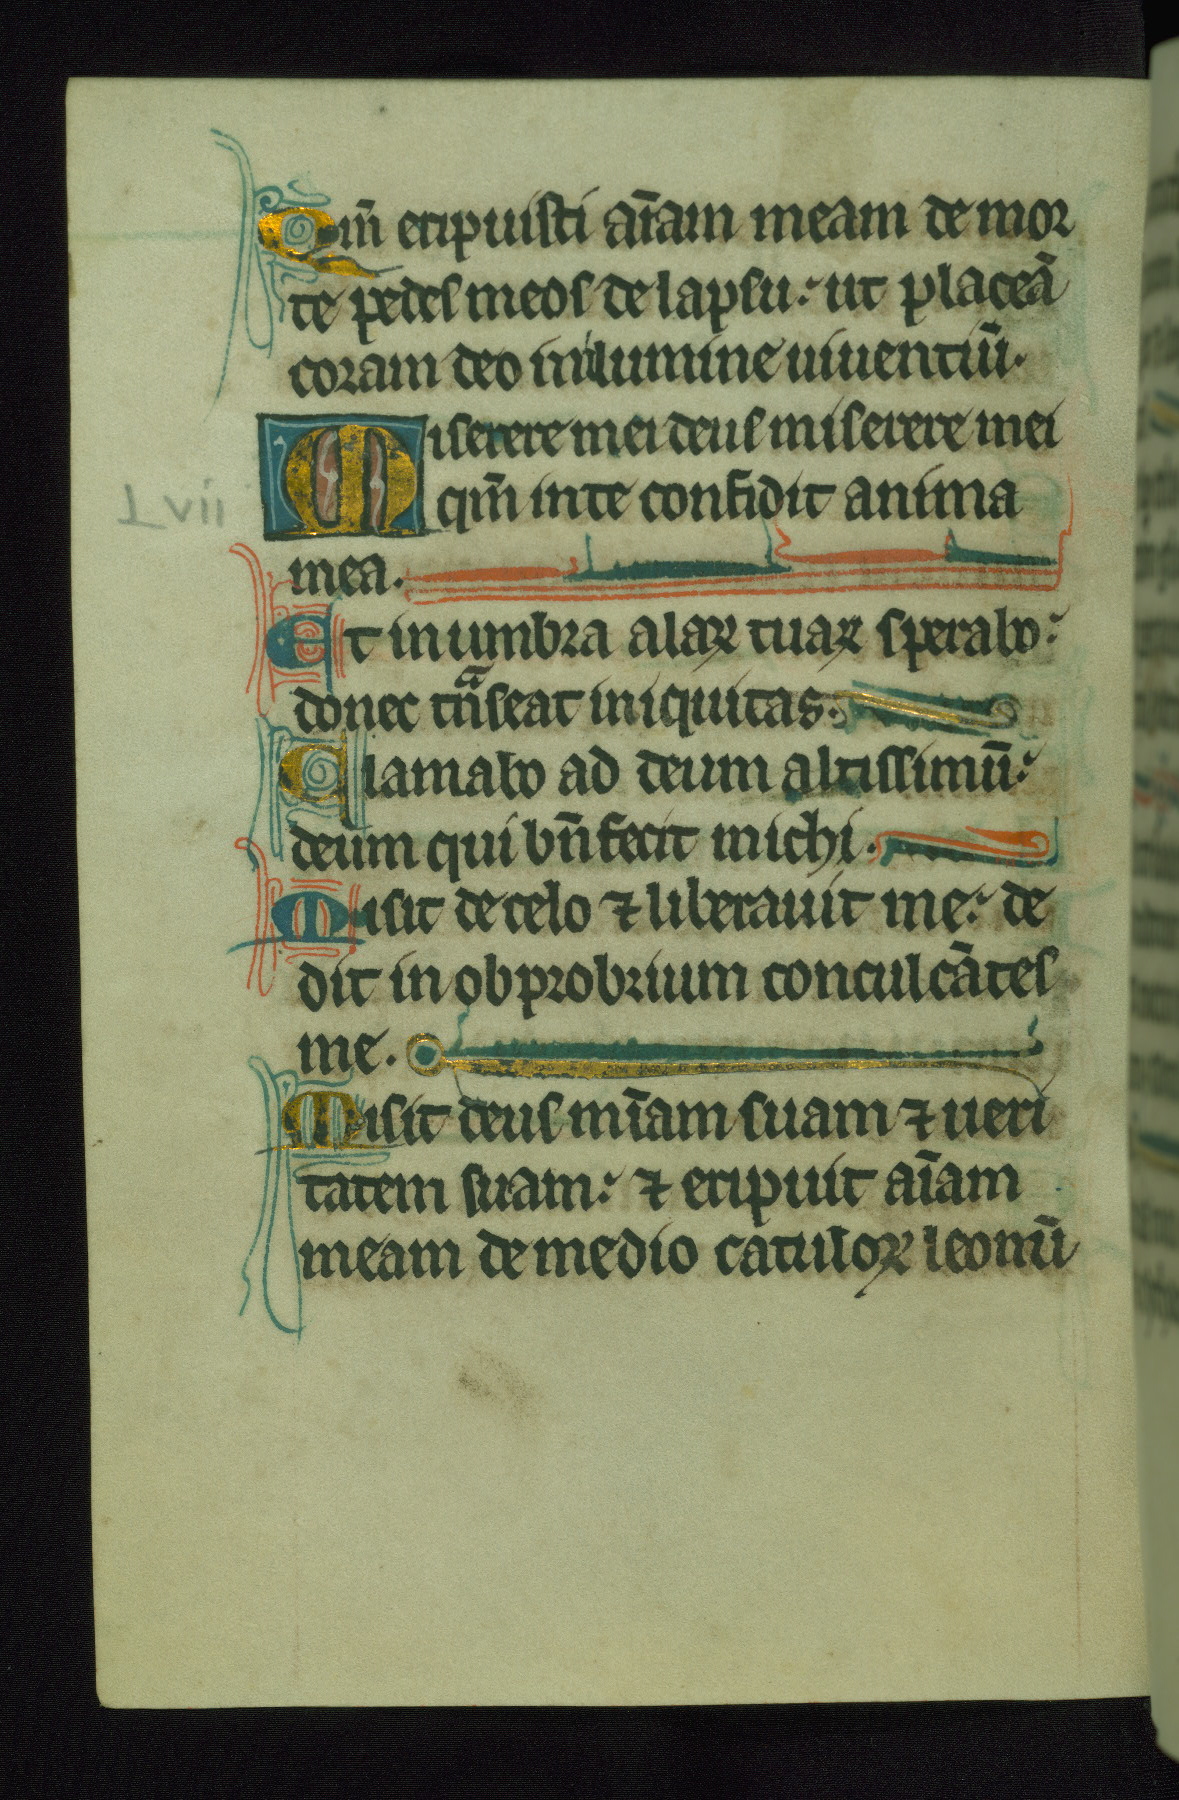 Qm̄ eripuisti aīam meam de mor
te pedes meos de lapsu: ut placeā
coram deo in lumine uiuentiū.
Miserere mei deus miserere mei
Lvii
qm̄ in te confidit anima
mea.
Et in umbra alaꝝ tuaꝝ sperabo:
donec tᷓnseat iniquitas.
Clamabo ad deum altissimū:
deum qui bn̄fecit michi.
Misit de celo ⁊ liberauit me: de
dit in obprobrium conculcātes
me.
Misit deus mīam suam ⁊ ueri
tatem suam: ⁊ eripuit aīam
meam de medio catuloꝝ leonū